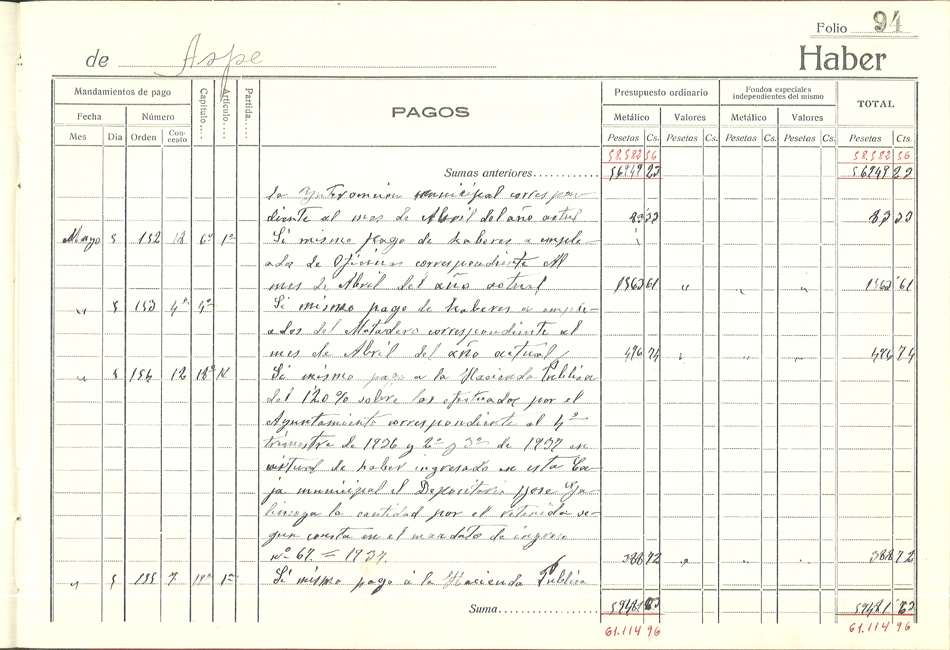 Folio 94
de Aspe Haber
Mandamientos de pago Capítulo.... Artículo.... Partida.... PAGOS Presupuesto ordinario Fondos especiales independientes del mismo TOTAL
Fecha Número Metálico Valores Metálico Valores
Mes Día Orden Concepto Pesetas Cs. Pesetas Cs. Pesetas Cs. Pesetas Cs. Pesetas Cts.
58.582 56 58.582 56
Sumas anteriores............ 56949 23 56949 23
la Intervención municipal correspon-
diente al mes de Abril del año actual 83 33 83 33
Mayo 5 152 6º 1º Si mismo pago de haberes a emplea-
ados de Oficinas correspondiente al
mes de Abril del año actual 1562 61 " " " 1562 61
" 5 153 4 4º Si mismo pago de haberes a emple-
ados del Matadero correspondiente al
mes de Abril del año actual 496 74 " " " 496 74
" 5 154 12 18º Si mismo pago a la Hacienda Pública
del 1'20 % sobre los efectuados por el
Ayuntamiento correspondiente al 4º
trimestre de 1936 y 2º y 3º de 1937 en
virtud de haber ingresado en esta Ca-
ja municipal el Depositario Jose Ga-
la cantidad por el retenida se-
gun consta en el mandato de ingreso
nº 67. = 1937. 388 72 " " " 388 72
" 5 155 7 1º Si mismo pago á la Hacienda Pública
Suma.................. 59481 63 59481 63
61.114 96 61.114 96